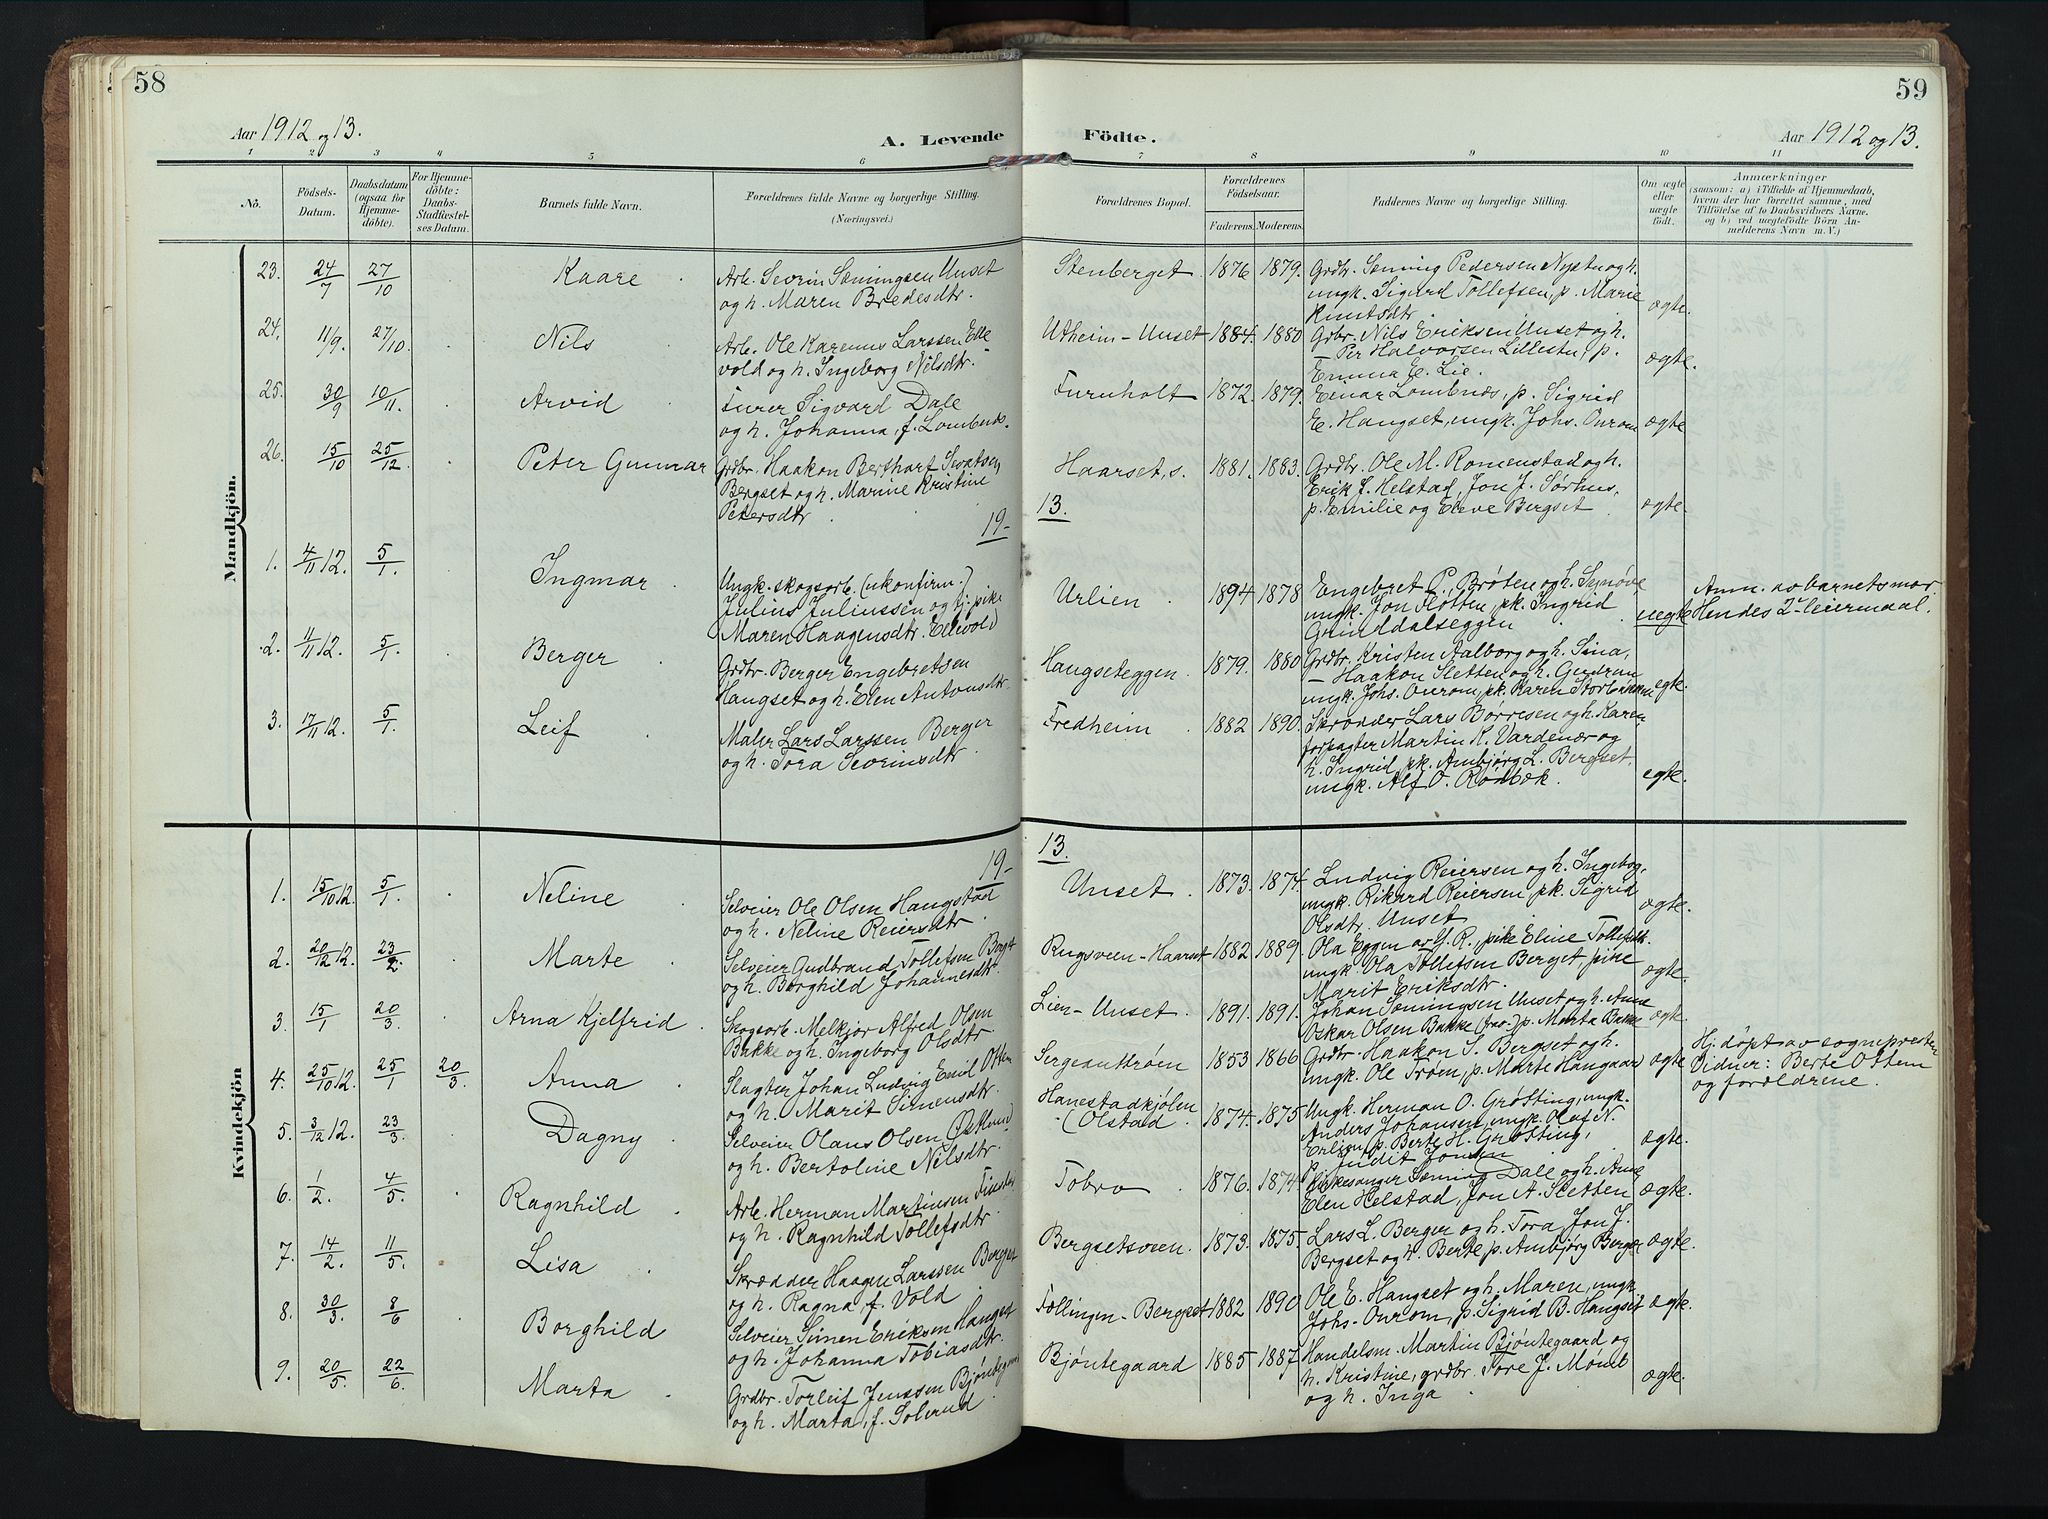 58
59
Aar 1912 og 13.
A. Levende
Födte.
Aar 1912 og 13.
1 2 3 4 5 6 7 8 9 10 11
No.
Födsels-
Datum.
Daabsdatum
(ogsaa for
Hjemme-
döbte).
For Hjemme-
döbte:
Daabs-
Stadfæstel-
ses Datum.
Barnets fulde Navn.
Forældrenes fulde Navne og borgerlige Stilling.
(Næringsvei.)
Forældrenes Bopæl.
Forældrenes
Födselsaar.
Faderens. Moderens.
Faddernes Navne og borgerlige Stilling.
Om ægte
eller
uægte
födt.
Anmærkninger
(saasom: a) i Tilfælde af Hjemmedaab,
hvem der har forrettet samme, med
Tilföielse af to Daabsvidners Navne.
og b) ved uægtefödte Börn An-
melderens Navn m. V.)
Mandkjön.
23. 24/7 27/10 Kaare
Arb. Sevrin Sæmingsen Unset
og h. Maren Bredesdtr.
Stenberget. 1876 1879.
Grdbr. Semming Pedersen Nyptu og h.
ungk. Sigurd Tollefsen, p. Marie
Knutsdtr.
ægte.
24. 11/9. 27/10. Nils
Arb. Ole Karenus Larssen Elle
vold og h. Ingeborg Nilsdtr.
Utheim - Unset 1884. 1880
Grbr. Nils Eriksen Unset og h.
— Per Halvorsen Lillestu, p.
Emma E. Lie.
ægte.
25. 30/9 10/11. Arvid
Furer Sigvard Dale
og h. Johanna, f. Lombnæs.
Furuholt 1872. 1879.
Einar Lombnæs, p. Sigrid
E. Hangset, ungk. Johs. Ourom
ægte
26. 15/10 25/12 Peter Gunnar
Grdbr. Haakon Bertharf Sevatsen
Bergset og h. Marine Kristine
Petersdtr.
Haarset, s. 1881. 1883.
Grdbr. Ole M. Romenstad og h.
Erik J. Helstad, Jon J. Sørhus,
p. Emilie og Eleve Bergset
ægte.
19-
13.
1. 4/11 12. 5/1. Ingmar
Ungk. skogsarb. (ukonfirm.)
Julius Juliussen og tj. pike
Maren Haagensdtr. Ellevold
Urlien 1894 1878
Engebret P. Brøten og h. Synøve,
ungk. Jon Fløtten, pk. Ingrid
Grinddalseggen
uegte
Anm. av barnets mor.
Hendes 2. leiermaal.
2. 11/11 12. 5/1. Berger
Grdbr. Berger Engebretsen
Hangset og h. Elen Antonsdtr.
Hangseteggen. 1879. 1880
Grdbr. Kristen Aalborg og h. Sina,
— Haakon Sletten og h. Gudrun
ungk. Johs. Ourom, pk. Karen Storbækken
egte.
3. 17/11 12. 5/1. Leif
Maler Lars Larssen Berger
og h. Tora Sevrinsdtr.
Fredheim 1882 1890.
Skrædder Lars Børresen og h. Karen
forpagter Martin K. Vardenær og
h. Ingrid, pk. Ambjørg L. Bergset,
ungk. Alf O. Rønbæk.
egte.
Kvindekjön
19-
13.
1. 15/10 12. 5/1. Neline
Selveier Ole Olsen Hangstad
og h. Neline Reiersdtr.
Unset. 1873. 1874.
Ludvig Reiersen og h. Ingebog,
ungk. Rikard Reiersen pk. Sigrid
Olsdtr. Unset
ægte.
2. 20/12 12. 23/2. Marte
Selveier Gudbrand Tollefsen
og h. Borghild Johannesdtr.
Rugsveen - Haarset 1882 1889.
Ola Eggen av Y. R., pike Eline Tollefsdtr.
ungk Ola Tollefsen Berget, pike
Marit Eriksdtr.
ægte.
3. 15/1 20/3. Arna Kjelfrid
Skogsarb. Melkior Alfred Olsen
Bakke og h. Ingeborg Olsdtr.
Lien - Unset. 1891. 1891.
Johan Sæmingsen Unset og h. Anne
Oskar Olsen Bakke p. Marta Bakke
ægte.
4. 25/10 12. 25/1 20/3. Anna
Slagter Johan Ludvig Emil Ottem
og h. Marit Simensdtr.
Sergeanttrøen 1853 1866
Grdbr. Haakon S. Bergset og h.
ungk. Ole Trøen, p. Marte Hangaard
ægte
Hj. døpt av sognepresten
Vidner: Berte Ottem
og forældrene.
5. 3/12 12. 23/3. Dagny
Selveier Olaus Olsen Østlund
og h. Bertoline Nilsdtr.
Hanestadkjølen
(Olstad. 1874. 1875
Ungk. Herman O. Grøtting, ungk.
Anders Johansen, ungk. Olaf N.
Erlien, p. Berte H. Grøtting,
p. Judit Jonsen
ægte.
6. 1/2. 4/5. Ragnhild
Arb. Herman Martinsen
og h. Ragnhild Tollefsdtr.
Tobro 1876. 1874
Kirkesanger Sæming Dale og h. Anne
Elen Helstad, Jon A. Sletten
ægte.
7. 14/2. 11/5. Lisa
Skrædder Haagen Larssen Berger
og h. Ragna, f. Vold
Bergsetsveen. 1873. 1875.
Lars L. Berger og h. Tora, Jon J.
Bergset og h. Berte, p. Ambjørg Berger
ægte.
8. 30/3. 8/6 Borghild
Selveier Simen Eriksen Hangset
og h. Johanna Tobiasdtr.
Føllingen - Bergset 1882 1890
Ole E. Hangset og h. Maren, ungk.
Johs. Ourom, p. Sigrid B. Hangset
ægte.
9. 20/5. 22/6. Marta
Grdbr. Torleif Jenssen Bjøntegaard
og h. Marta, f. Solerud
Bjøntegaard 1885 1887
Handelsm. Martin Bjøntegaard og
h. Kristine, grdbr. Tore J. Momb
og h. Inga
ægte.